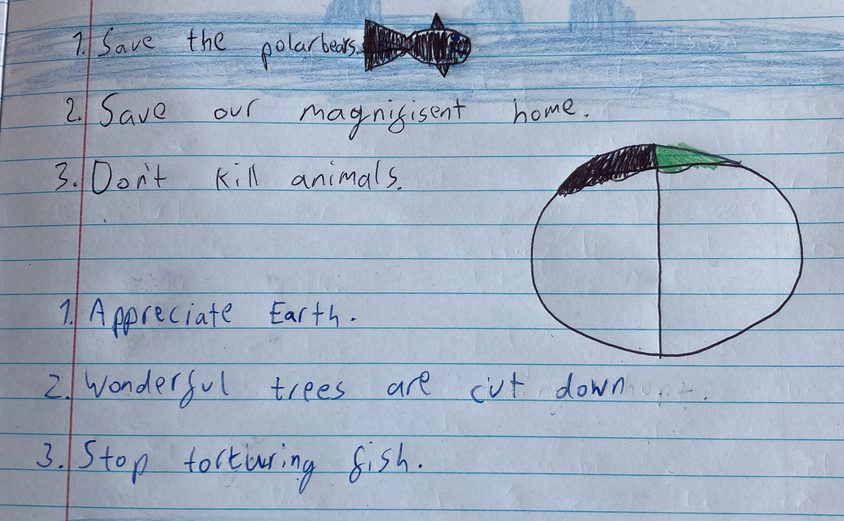 1. Save the polarbears.
2. Save our magnifisent home.
3. Don't kill animals.
1. Appreciate Earth.
2. Wonderful trees are cut down
3. Stop torturing fish.